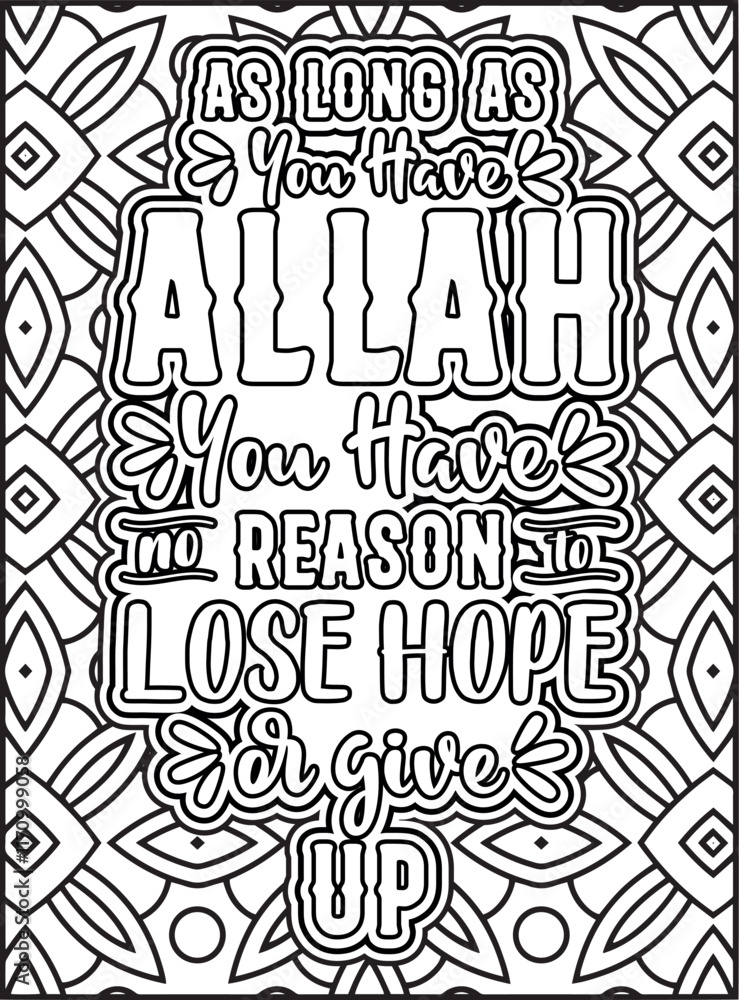 AS LONG AS
You Have
ALLAH
You Have
no REASON to
LOSE HOPE
or give
UP
Adobe Stock | #1170999058